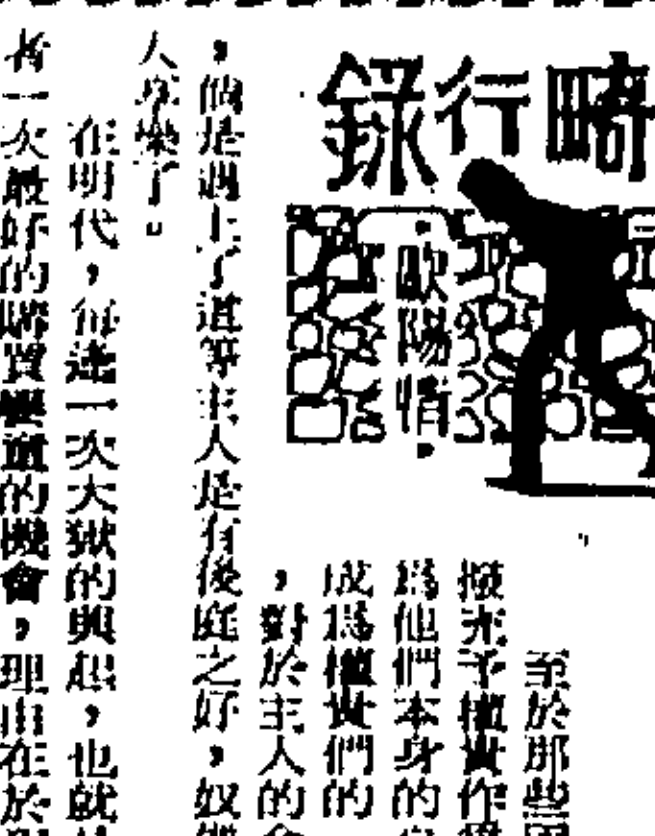 畸行錄
歐陽惜
至於那些
撥充予權貴作
爲他們本身的
成爲權貴們的
，對於主人的
，倘是遇上了這等主人是有後庭之好，奴
人享樂了。
在明代，每逢一次大獄的興起，也就
者一次最好的購買孌童的機會，理由在於